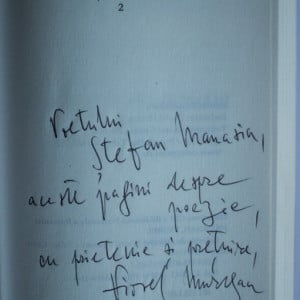 2
Poetului
Ștefan Manasia,
aceste pagini despre
poezie,
cu prietenie și prețuire,
Viorel Mureșan